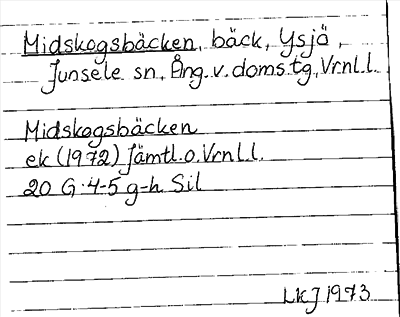 Midskogsbäcken, bäck, Ysjö,
Junsele sn, Ång.v.doms.tg, Vrnl.l.
Midskogsbäcken
ek (1972) Jämtl.o.Vrnl.l.
20 G·4-5 g-h Sil
LKJ 1973